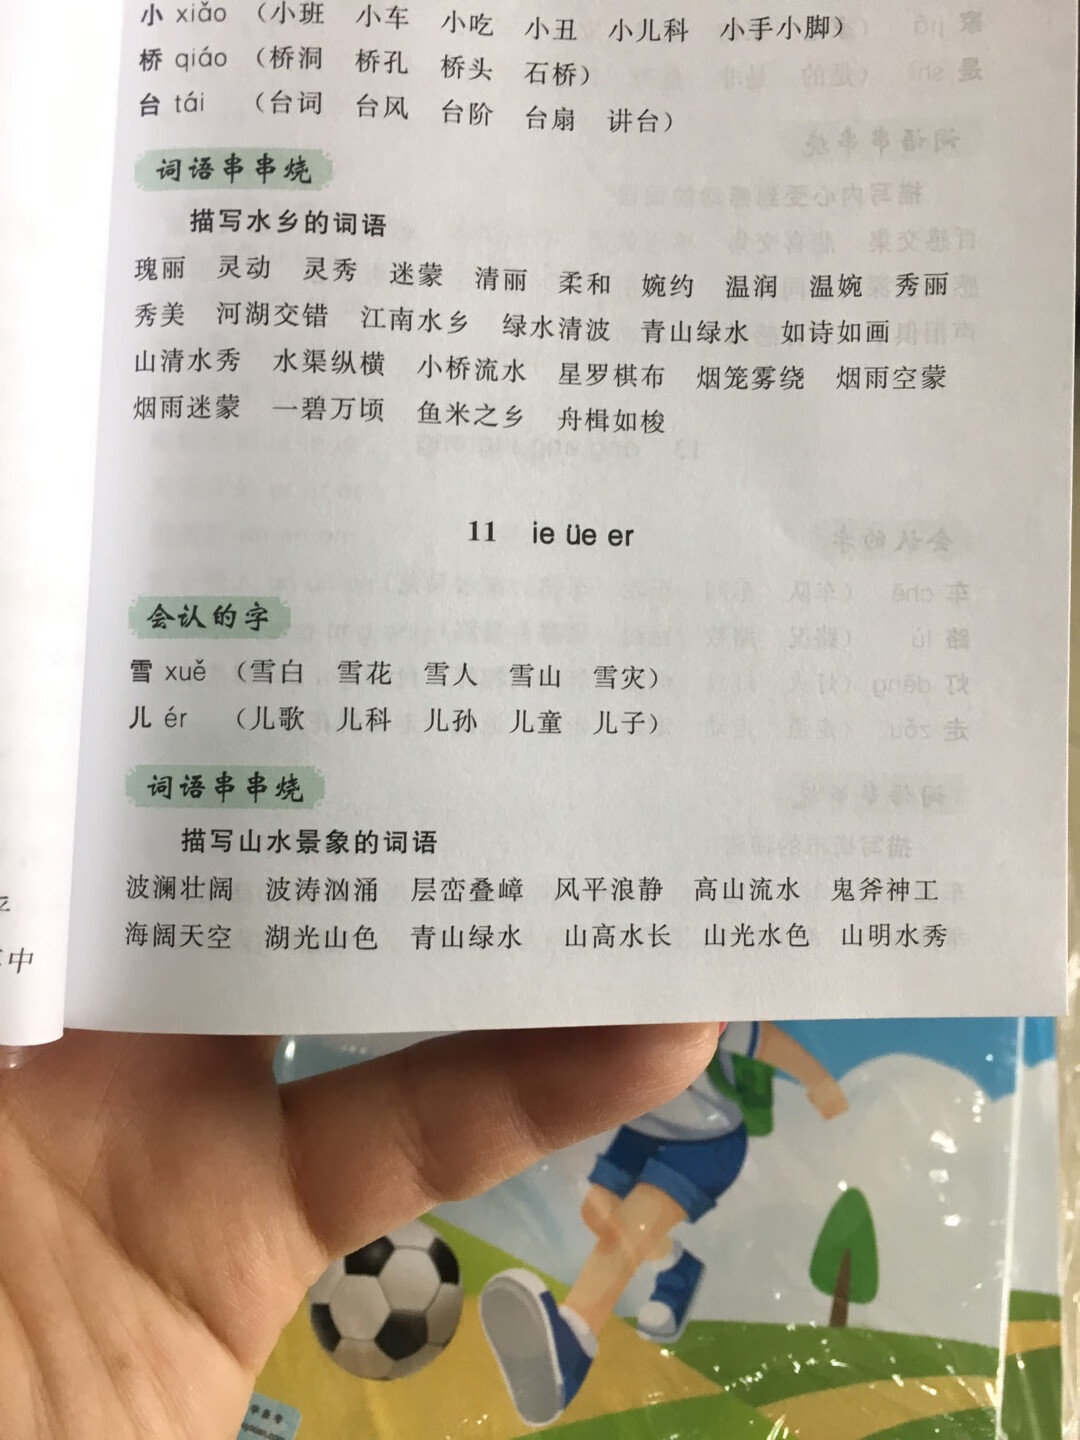 小 xiǎo （小班 小车 小吃 小丑 小儿科 小手小脚）
桥 qiáo （桥洞 桥孔 桥头 石桥）
台 tái （台词 台风 台阶 台扇 讲台）
词语串串烧
描写水乡的词语
瑰丽 灵动 灵秀 迷蒙 清丽 柔和 婉约 温润 温婉 秀丽
秀美 河湖交错 江南水乡 绿水清波 青山绿水 如诗如画
山清水秀 水渠纵横 小桥流水 星罗棋布 烟笼雾绕 烟雨空蒙
烟雨迷蒙 一碧万顷 鱼米之乡 舟楫如梭
11 ie üe er
会认的字
雪 xuě （雪白 雪花 雪人 雪山 雪灾）
儿 ér （儿歌 儿科 儿孙 儿童 儿子）
词语串串烧
描写山水景象的词语
波澜壮阔 波涛汹涌 层峦叠嶂 风平浪静 高山流水 鬼斧神工
海阔天空 湖光山色 青山绿水 山高水长 山光水色 山明水秀
中